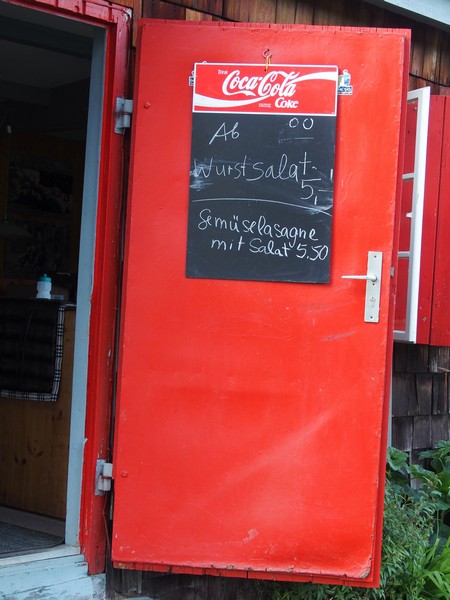 Coca-Cola
Coke
Ab 00
Wurstsalat
5,-
Gemüselasagne
mit Salat 5,50